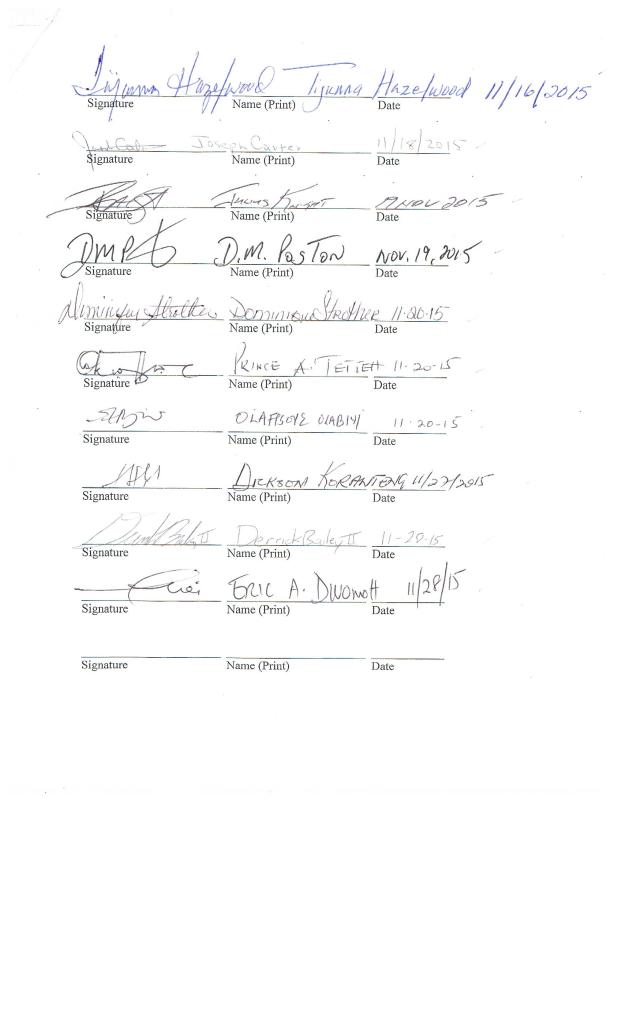 Tijuanna Hazelwood Tijuanna Hazelwood 11/16/2015
Signature Name (Print) Date
Joseph Carter 11/18/2015
Signature Name (Print) Date
Julius Knight NOV 2015
Signature Name (Print) Date
DMP D.M. POSTON NOV. 19, 2015
Signature Name (Print) Date
Dominique Strother Dominique Strother 11-20-15
Signature Name (Print) Date
PRINCE A. TETTEH 11-20-15
Signature Name (Print) Date
OLABIYI 11-20-15
Signature Name (Print) Date
DICKSON KORANTENG 11/27/2015
Signature Name (Print) Date
Derrick Bailey II Derrick Bailey II 11-20-15
Signature Name (Print) Date
ERIC A. DWOMOH 11/28/15
Signature Name (Print) Date
Signature Name (Print) Date